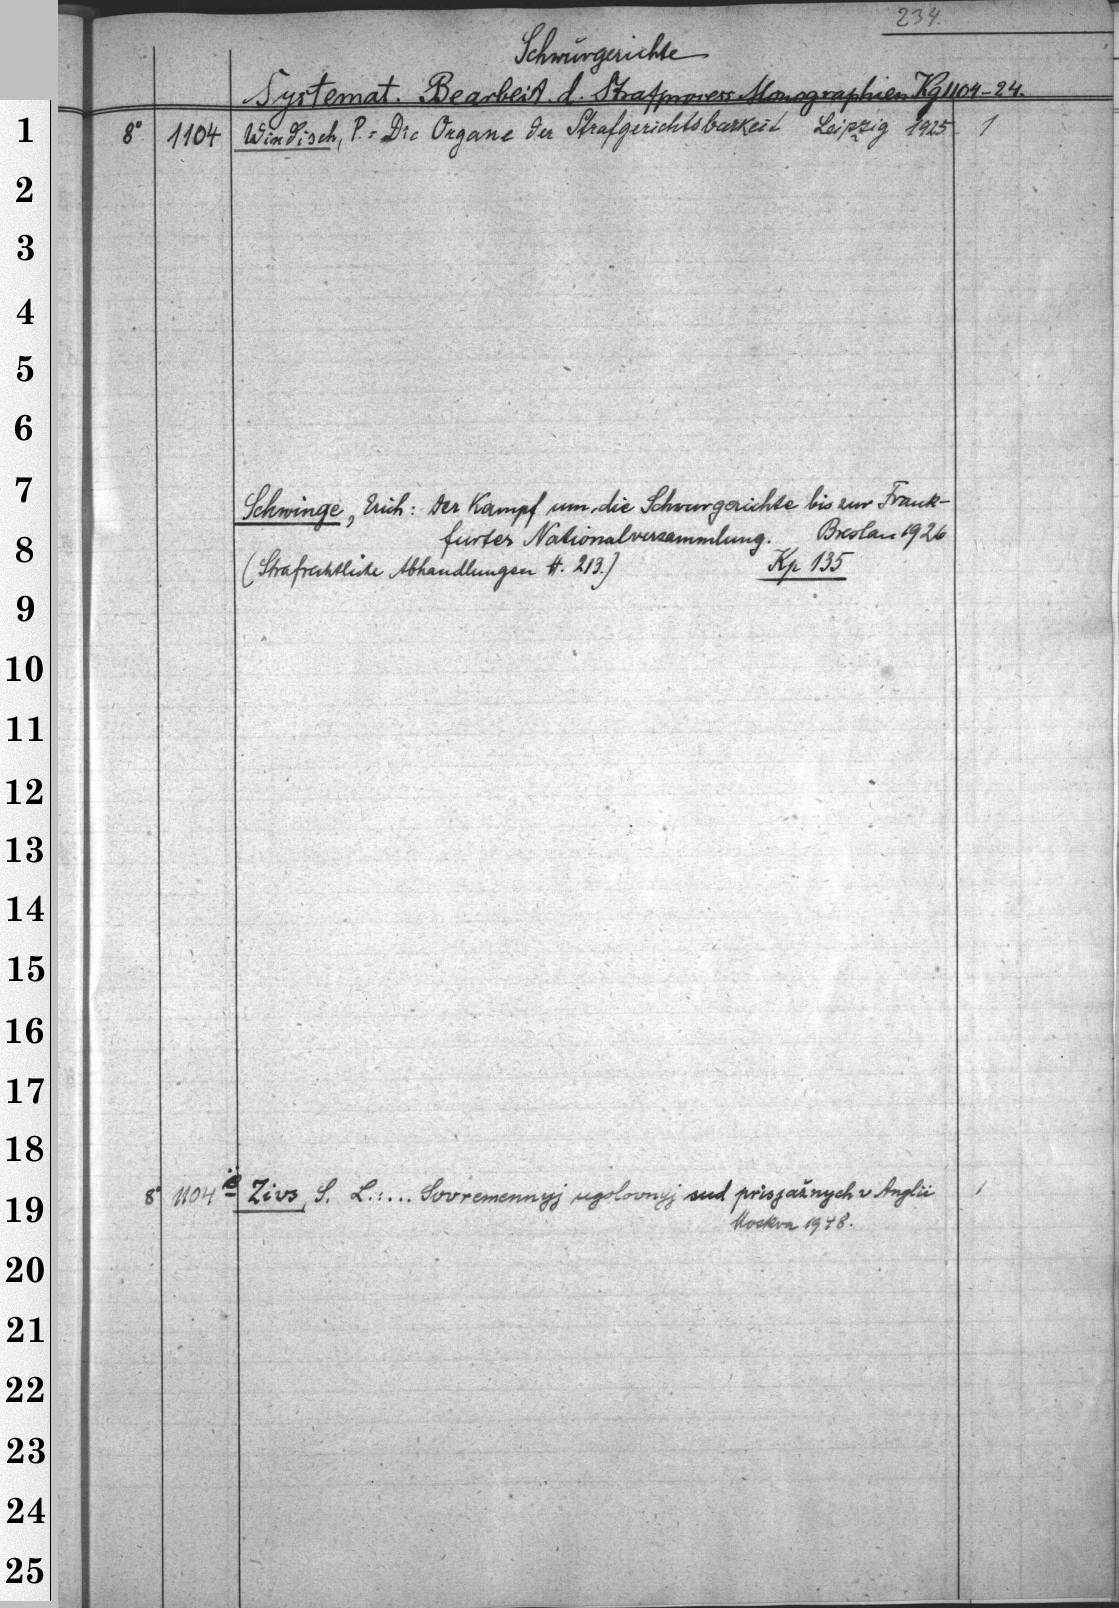 234.
Schwurgerichte
Systemat. Bearbeit. d. Strafprozess Monographien Kg 1104-24.
1 8° 1104 Windisch, P.: Die Organe der Strafgerichtsbarkeit Leipzig 1925. 1
2
3
4
5
6
7 Schwinge, Erich: Der Kampf um die Schwurgerichte bis zur Frank-
8 furter Nationalversammlung. Breslau 1926
(Strafrechtliche Abhandlungen H. 213.) Kp 135
9
10
11
12
13
14
15
16
17
18
19 8° 1104 Zivs, S. L.: ... Sovremennyj ugolovnyj sud prisjažnych v Anglii 1
Moskva 1948.
20
21
22
23
24
25